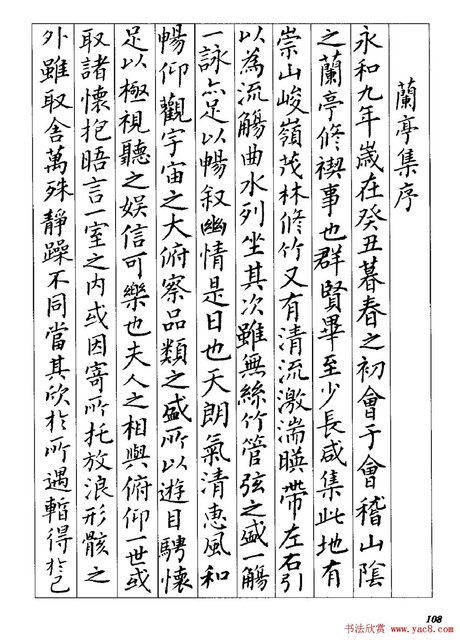 蘭亭集序
永和九年歲在癸丑暮春之初會于會稽山陰
之蘭亭修禊事也群賢畢至少長咸集此地有
崇山峻嶺茂林修竹又有清流激湍暎帶左右引
以為流觴曲水列坐其次雖無絲竹管弦之盛一觴
一詠亦足以暢叙幽情是日也天朗氣清惠風和
暢仰觀宇宙之大俯察品類之盛所以遊目騁懷
足以極視聽之娛信可樂也夫人之相與俯仰一世或
取諸懷抱晤言一室之內或因寄所托放浪形骸之
外雖取舍萬殊靜躁不同當其欣於所遇暫得於己
108
书法欣赏 www.yac8.com